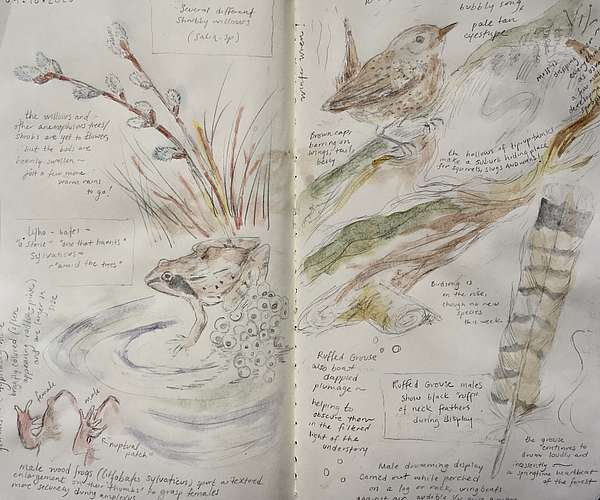 Several different
shrubby willows
(Salix sp)
the willows and
other anemophilous trees/
shrubs are yet to flower,
but the buds are
heavily swollen ~
just a few more
warm rains
to go!
Litho - bates -
"a stone" "one that haunts"
Sylvaticus -
~ "amid the trees"
highly colored (often
and are larger in
size
female
male
"nuptial
patch"
male wood frogs (Lithobates sylvaticus) sport a textured
enlargement on their "thumbs" to grasp females
more securely during amplexus
bubbly song
pale tan
eyestripe
Brown cap,
barring on
wings, tail,
belly
the hollows of tip-up trunks
make a superb hiding place
for squirrels, slugs and wrens!
Birdsong is
on the rise,
though no new
species
this week.
Ruffed Grouse
also boast
dappled
plumage ~
helping to
obscure them
in the filtered
light of the
understory
Ruffed Grouse males
show black "ruff"
of neck feathers
during display
the grouse
continues to
drum loudly and
incessantly ~
a springtime heartbeat
of the forest
Male drumming display
carried out while perched
on a log or rock, wingbeats
against air audible